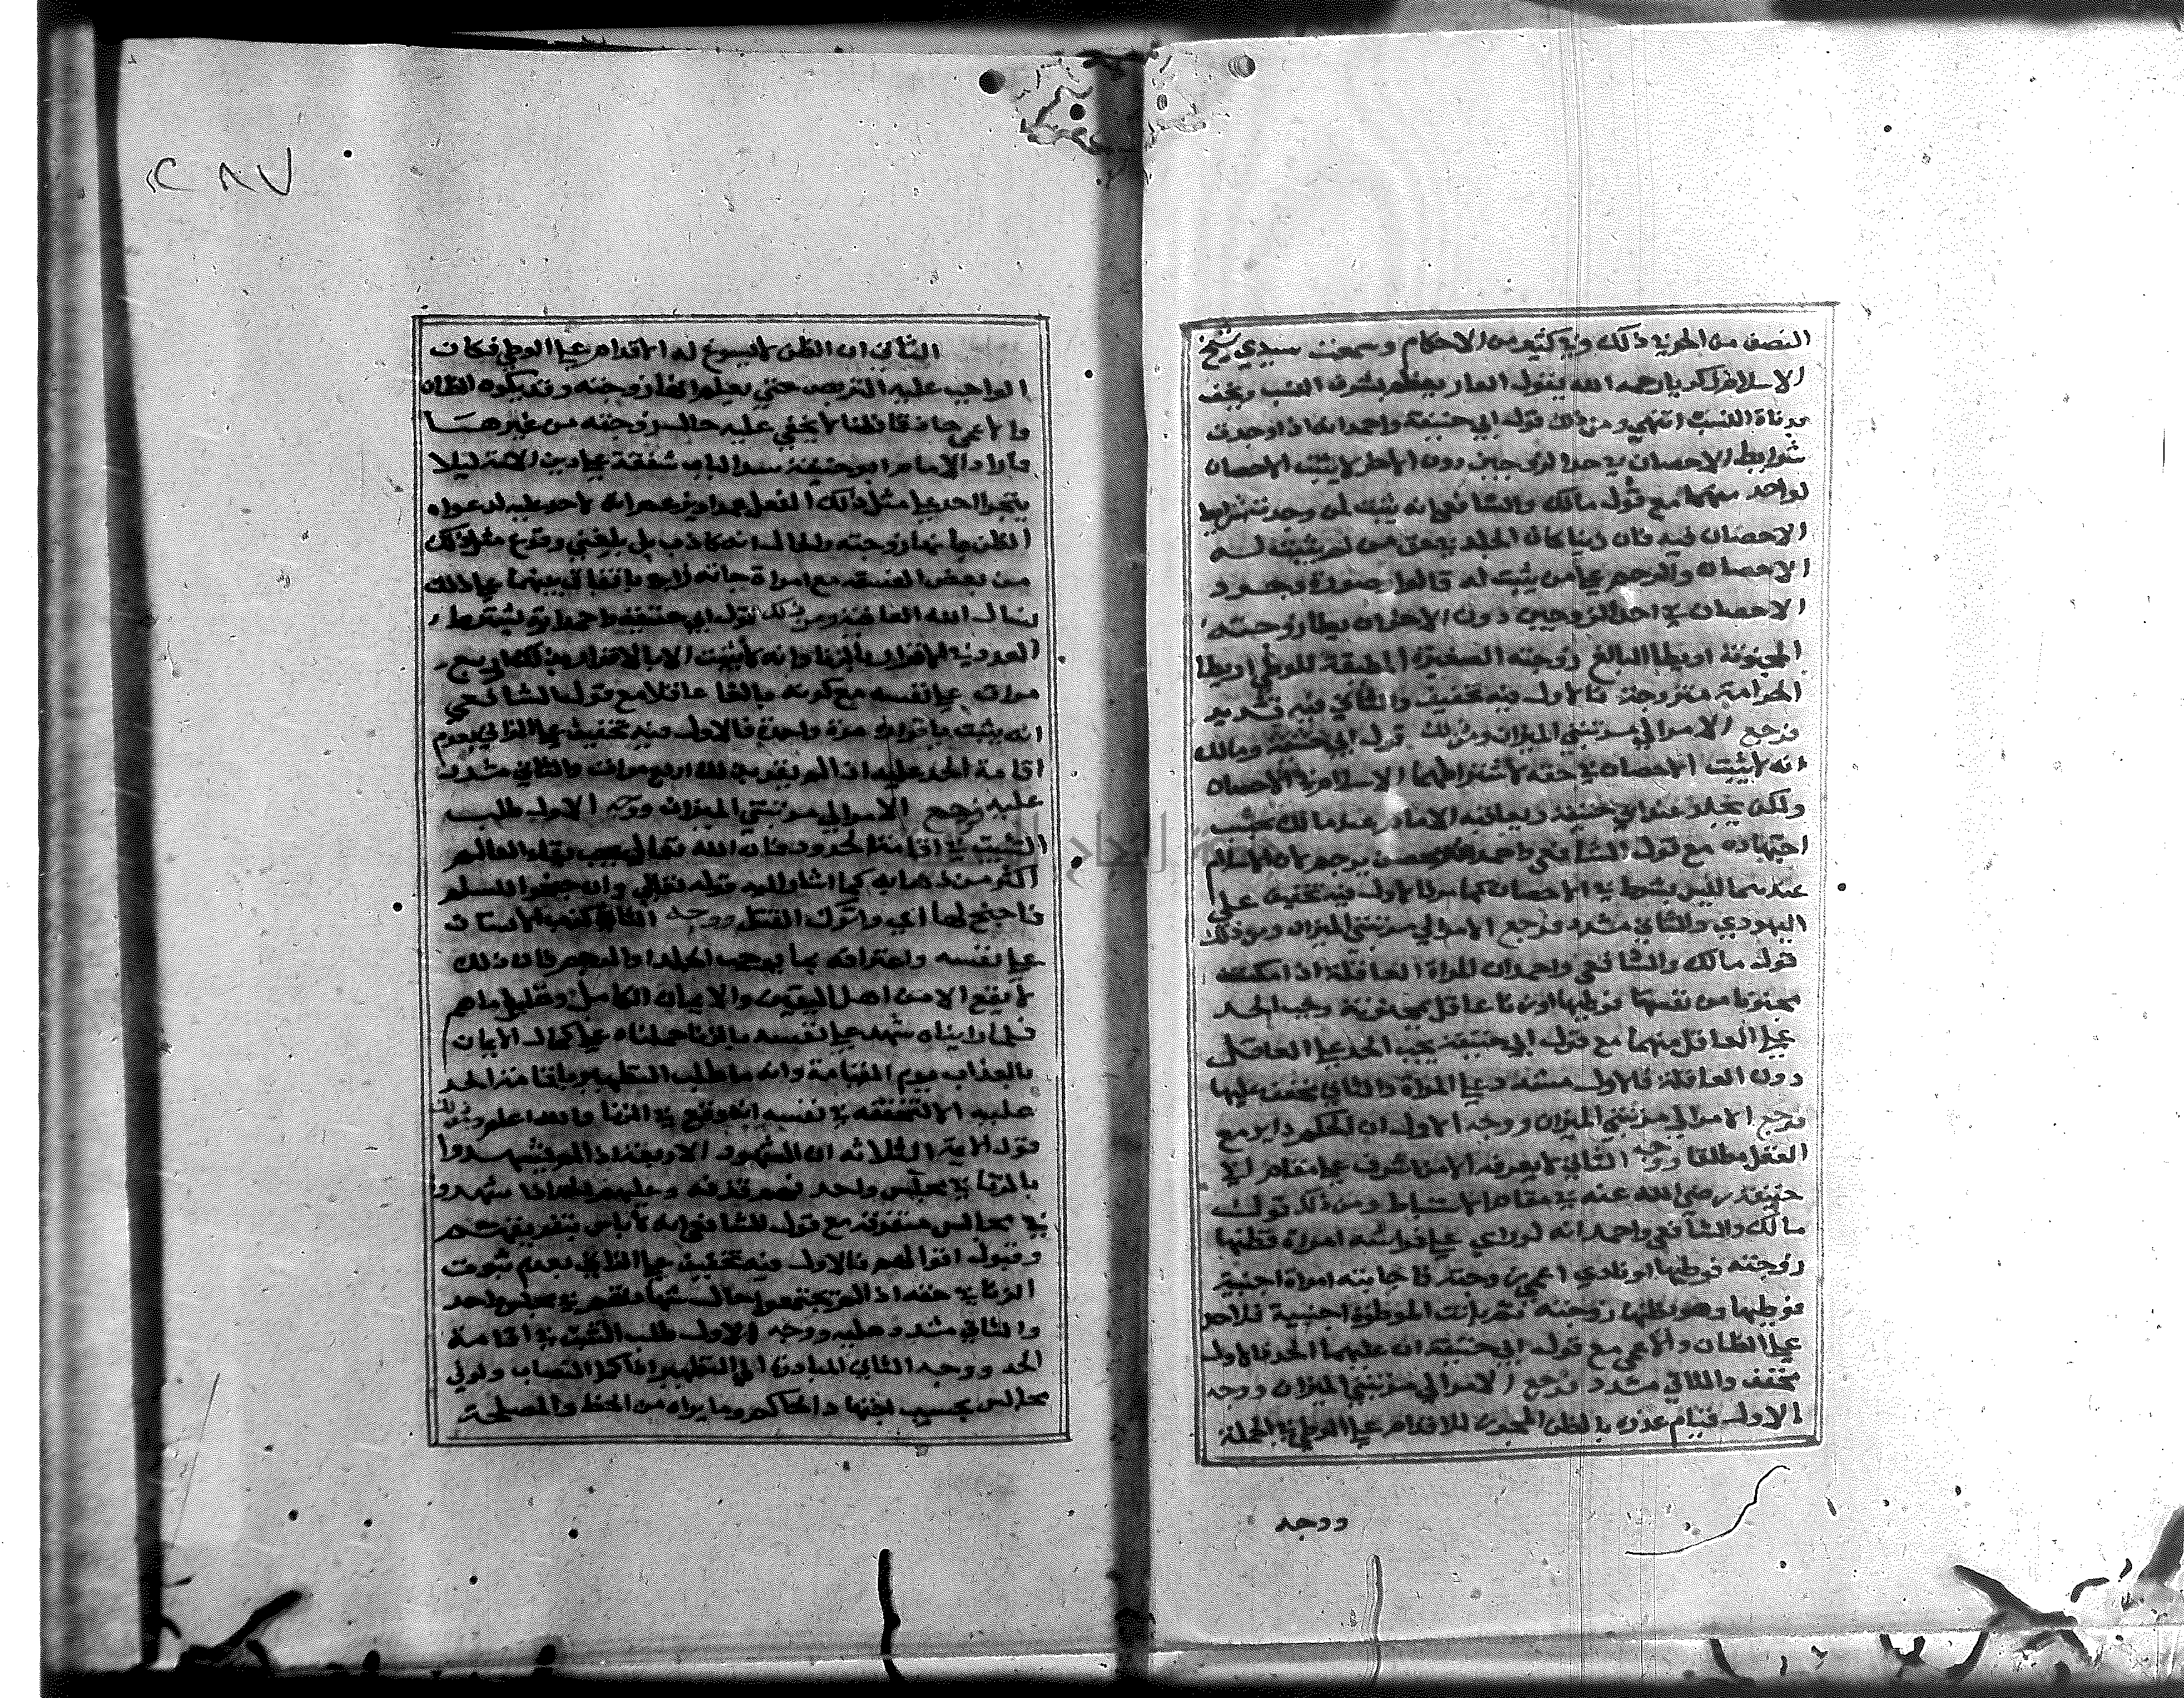 النصف من الحر في ذلك وفي كثير من الاحكام وسمعت سيدي شيخ
الاسلام زكريا رحمه الله يقول العار يعظم بشرف النسب ويخف
بدناة النسب انتهي ومن ذلك قول ابي حنيفة واحمد انه اذا وجدت
شرايط الاحصان في احد الزوجين دون الاخر لا يثبت الاحصان
لواحد منهما مع قول مالك والشافعي انه يثبت لمن وجدت شرايط
الاحصان فيه فان زنيا كان الجلد في حق من لم يثبت لـه
الاحصان والرجم علي من يثبت له قالوا صورة وجـود
الاحصان في احد الزوجين دون الاخر ان يطا زوجته
المجنونة او يطا البالغ زوجته الصغيرة المطيقة للوطي او يطا
الحر امة متزوجة فالاول فيه تخفيف والثاني فيه تشديد
فرجع الامر الي مرتبتي الميزان ومن ذلك قول ابي حنيفة ومالك
انه لا يثبت الاحصان في حقه لاشتراطهما الاسلام في الاحصان
ولكن يجلد عند ابي حنيفة ويعاقبه الامام عند مالك بحسب
اجتهاده مع قول الشافعي واحمد يرجم لان الاسلام
عندهما ليس بشرط في الاحصان كما مر فالاول فيه تخفيف علي
اليهودي والثاني مشدد فرجع الامر الي مرتبتي الميزان ومن ذلك
قول مالك والشافعي واحمد ان المراة العاقلة اذا امكنت
مجنونا من نفسها فوطيها او زنا عاقل بمجنونة وجب الحد
علي العاقل منهما مع قول ابي حنيفة يجب الحد علي العاقل
دون العاقلة فالاول مشدد علي المراة والثاني مخفف عليها
فرجع الامر الي مرتبتي الميزان ووجه الاول ان الحكم داير مع
العقل مطلقا ووجه الثاني لا يعرفه الا من اشرف علي مقام ابي
حنيفة رضي الله عنه في مقام الاستنباط ومن ذلك قول
مالك والشافعي واحمد انه لو راي علي فراشه امراة فظنها
زوجته فوطيها او نادي اعمي زوجته فاجابته امراة اجنبية
فوطيها وهو يظنها زوجته فبانت الموطوة اجنبية فلا حد
علي الظان والاعمي مع قول ابي حنيفة ان عليهما الحد فالاول
مخفف والثاني مشدد فرجع الامر الي مرتبتي الميزان ووجه
الاول قيام عذره بالظن المجوز للاقدام علي الوطي في الجملة
ووجه
٢٨٧
الثاني ان الظن لا يسوغ له الاقدام علي الوطي فكان
الواجب عليه التربص حتي يعلم انها زوجته وقد يكون الظان
والاعمي حاذقا فطنا لا يخفي عليه حال زوجته من غيرهـا
واراد الامام ابو حنيفة سد الباب شفقة علي دين الامة ليلا
يتجرا احد علي مثل ذلك الفعل عمدا ويزعم انه لا حد عليه لدعواه
الظن بانها زوجته والحال انه كاذب بل بلغني وقوع مثل ذلك
من بعض الفسقه مع امراة جاره باتفاق بينهما علي ذلك
نسال الله العافية ومن ذلك قول ابي حنيفة واحمد انه يشترط
العدد في الاقرار بالزنا وانه لا يثبت الا بالاقرار بذلك اربع
مرات علي نفسه مع كونه بالغا عاقلا مع قول الشافعي
انه يثبت باقراره مرة واحدة فالاول فيه تخفيف علي الزاني بعدم
اقامة الحد عليه اذا لم يقر بذلك اربع مرات والثاني مشدد
عليه فرجع الامر الي مرتبتي الميزان ووجه الاول طلب
التثبت في اقامة الحدود فان الله تعالي يحب بقاء العالم
اكثر من ذهابه كما اشار اليه قوله تعالي وان جنحوا للسلم
فاجنح لها اي واترك القتل ووجه الثاني الانسان
علي نفسه واعترافه بما يوجب الجلد او الرجم فان ذلك
لا يقع الا من اهل اليقين والايمان الكامل وقليل ماهم
فلما رايناه شهد علي نفسه بالزنا حملناه علي كمال الايمان
بالعذاب يوم القيامة وانه ما طلب التطهير باقامة الحد
عليه الا لتحققه في نفسه انه وقع في الزنا والله اعلم ومن ذلك
قول الايمة الثلاثه ان الشهود الاربعة اذا لم يشهـدوا
بالزنا في مجلس واحد فهم قذفة وعليهم الحد اذا شهدوا
في مجالس متفرقة مع قول الشافعي انه لا باس بتفريقهـم
وقبول اقوالهم فالاول فيه تخفيف علي الزاني بعدم ثبوت
الزنا في حقه اذا لم يجتمعوا حال شهادتهم في مجلس واحد
والثاني مشدد عليه ووجه الاول طلب التثبت في اقامة
الحد ووجه الثاني المبادرة الي التطهير اذا كمل النصاب ولو في
مجالس بحسب اجتهاد الحاكم وما يراه من الحظ والمصلحة